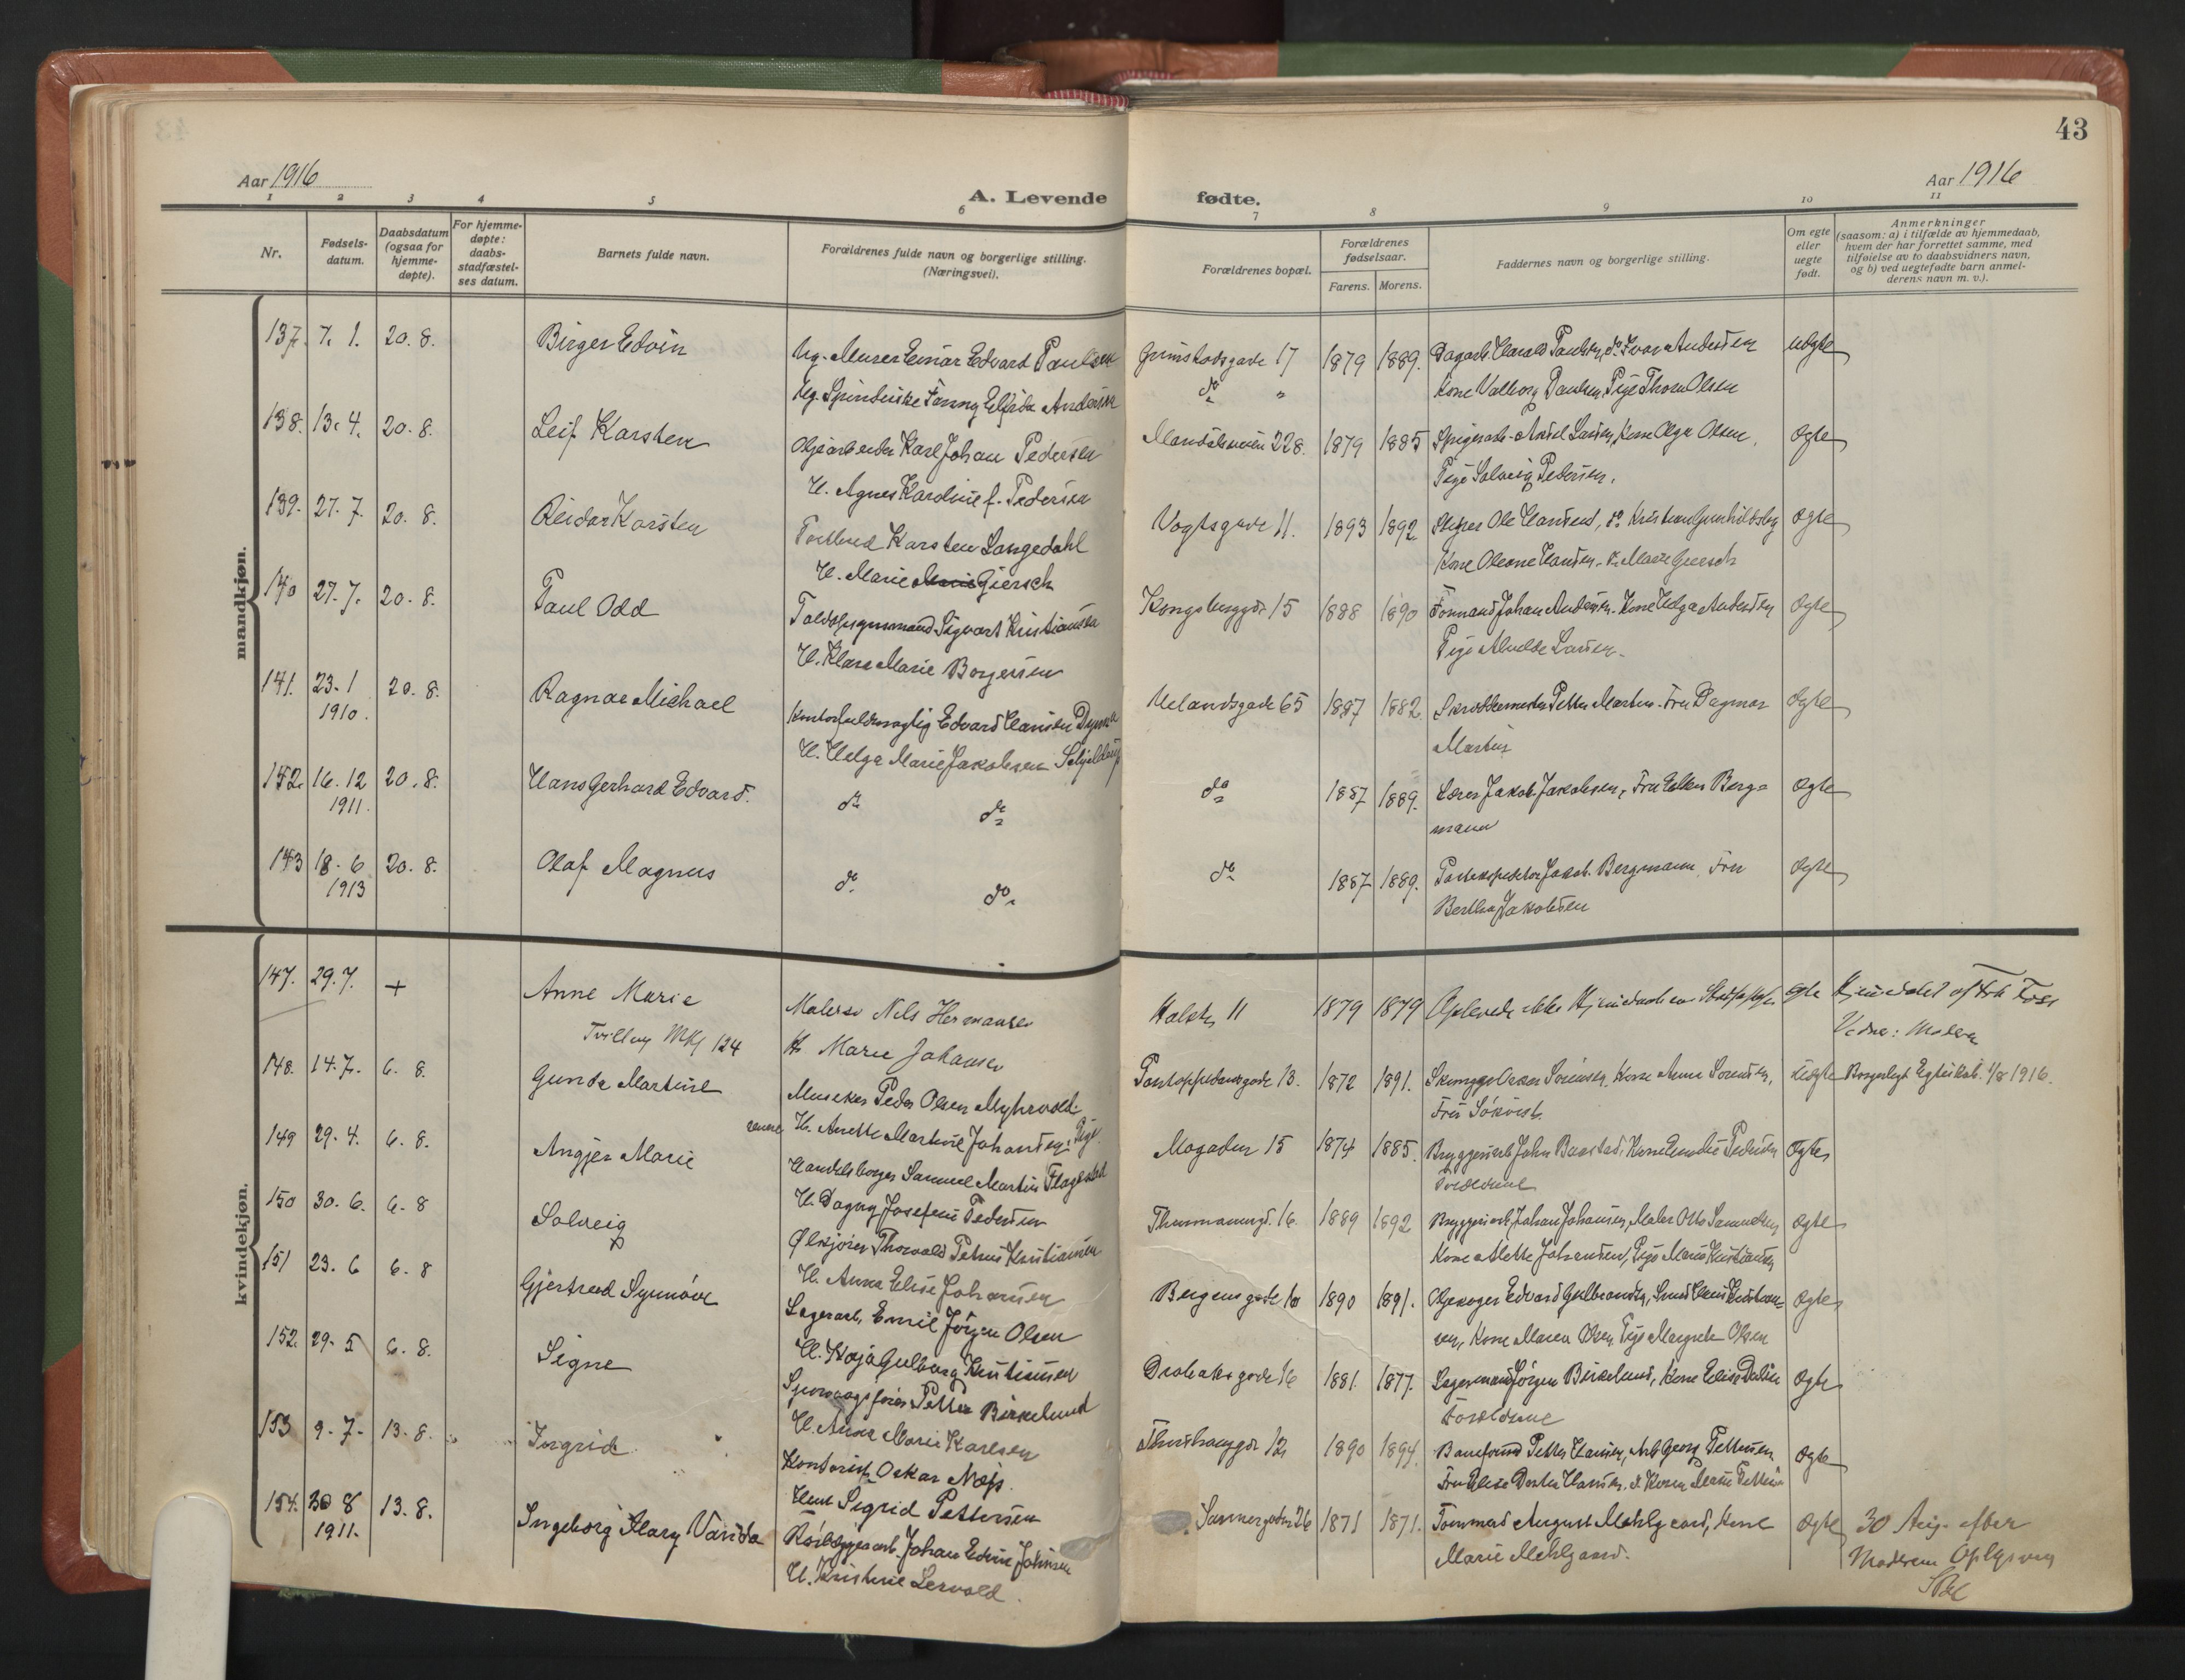 43
Aar 1916
Aar 1916
A. Levende fødte.
1 2 3 4 5 6 7 8 9 10 11
Nr.
Fødsels-
datum.
Daabsdatum
(ogsaa for
hjemme-
døpte).
For hjemme-
døpte:
daabs-
stadfæstel-
ses datum.
Barnets fulde navn.
Forældrenes fulde navn og borgerlige stilling.
(Næringsvei).
Forældrenes bopæl.
Forældrenes
fødselsaar.
Farens. Morens.
Faddernes navn og borgerlige stilling.
Om egte
eller
uegte
født.
Anmerkninger
(saasom: a) i tilfælde av hjemmedaab,
hvem der har forrettet samme, med
tilføielse av to daabsvidners navn,
og b) ved uegtefødte barn anmel-
derens navn m. v.).
mandkjøn.
137. 7. 1. 20. 8. Birger Edvin Ug. Murer Einar Edvard Paulsen Grimstadsgade 17 1879 1889. Dagarb. Harald Paulsen, do Ivar Andersen uegte
Ug. Spinderiske Fanny Elfrida Andersen do " Kone Valborg Paulsen, Pige Thora Olsen
138. 13. 4. 20. 8. Leif Karsten Oljearbeider Karl Johan Pedersen Mandalsveien 228. 1879 1885 Spigerarb. Aksel Larsen, Kone Olga Olsen, Egte
H. Agnes Karoline f. Pedersen Pige Solveig Pedersen.
139. 27. 7. 20. 8. Reidar Karsten Postbud Karsten Langedahl Vogtsgade 11. 1893 1892 Ole Hansen, do Kristian Gunhildsby Egte
H. Marie Giersch Kone Oleane Hansen, Marie Giersch
140 27. 7. 20. 8. Paul Odd Sigvart Kristiansen Kongsberggd. 15 1888 1890 Formand Johan Andersen, Kone Helga Andersen Egte
H. Klara Marie Borgersen Pige Larsen
141. 23. 1 20. 8. Ragnar Michael Kontorfuldmægtig Edvard Hansen Uelandsgade 65 1887 1882. Petter Martin, Fru Dagmar Egte
1910. H. Helga Marie Jakobsen Schjelderup Martin
142. 16. 12 20. 8. Hans Gerhard Edvard. do do do 1887 1889. Lærer Jakob Jakobsen, Fru Ellen Berg= Egte
1911. mann
143 18. 6 20. 8. Olaf Magnus do do do 1887 1889. Postekspeditør Jakob Bergmann, Fru Egte
1913 Bertha Jakobsen
kvindekjøn.
147. 29. 7. + Anne Marie Malersv. Nils Hermansen 11 1879 1879 Oplevede ikke Hjemmedaabens Stadfæstelse egte Hjemmedøbt af Frk Foss
Tvilling Mkj 124 H. Marie Johansen Vidne: Moderen
148. 14. 7. 6. 8. Gunda Martine Musiker Peder Olsen Myhrvold 13. 1872 1891. Oskar Sørensen, Kone Anna Sørensen, uegte Borgerligt Egteskab 1/8 1916.
senere H. Anette Martine Johansen, Pige Fru
149 29. 4. 6. 8. Angjer Marie Handelsborger Samuel Martin Flagestad Mogaden 15 1874 1885. Bryggeriarb. John Baastad, Kone Pedersen Egte
H. Dagny Josefine Pedersen Forældrene
150 30. 6. 6. 8 Solveig Ølkjører Thorvald Petrus Kristiansen 16. 1889 1892 Bryggeriarb. Johan Johansen, Maler Otto Egte
H. Anna Elise Johansen Kone Johansen, Pige Marie Kristiansen
151 23. 6 6. 8 Gjertrud Synnøve Lagerarb. Emil Jørgen Olsen Bergensgade 10 1890 1891. Edvard Gulbrandsen, Smed Hans Kristian= Egte
H. Kaja Gulborg Kristiansen sen, Kone Maren Olsen, Pige Margrete Olsen
152. 29. 5 6. 8. Signe Sporvogsfører Petter Birkelund Drøbaksgade 16 1881. 1877. Lagermand Jørgen Birkelund, Kone Elise Egte
H. Anna Marie Karlsen Forældrene
153 9. 7. 13. 8. Ingrid Kontorist Oskar Næss 12 1890 1894. Petter Hansen, Arb. Georg Pettersen Egte
Sigrid Pettersen Fru Elise Hansen, Marie Pettersen
154. 30 8 13. 8. Ingeborg Mary Vanda Johan Edvin Johnsen Sannergaden 26 1871 1871. Formand August Mehlgaard, Kone Egte 30 Aug. efter
1911. H. Kristine Lervold. Marie Mehlgaard. Moderens Oplysning